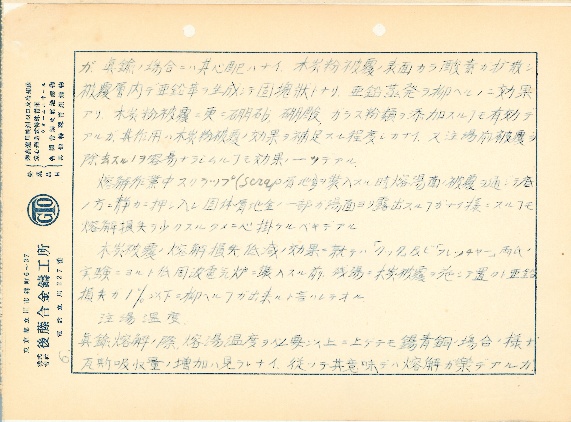 ガ真鍮ノ場合ニハ其心配ハナイ。木炭粉被覆ノ表面カラ酸素ガ拡散シ
被覆層内デ亜鉛華ヲ生成シテ固塊状トナリ、亜鉛蒸発ヲ抑ヘルノニ効果
アリ 木炭粉被覆ニ更ニ硼砂、硼酸、ガラス粉類ヲ添加スルノモ有効デ
アルガ、其作用ハ木炭粉被覆ノ効果ヲ補足スル程度シカナイ。又注湯前被覆ヲ
除去スルノヲ容易ナラシムルノモ効果ノ一ツデアル。
熔解作業中スクラップ(scrap 地金)ヲ装入スル時熔湯面ノ被覆ヲ通シテ
ノ方ニ静カニ押シ入レ固体地金ノ一部ガ湯面ヨリ露出スル ガナイ様ニスルノモ
熔解損失ヲ少クスルタメニ心掛クベキデアル
木炭被覆ノ熔解損失低減ノ効果ニ就テハ 両氏ノ
実験ニヨルト低周波電気炉ニ装入スル前ニ残湯ニ木炭被覆ヲ施シテ置クト亜鉛
損失ガ1%以下ニ抑ヘル ガ出来ルト言ハレテヰル
注湯温度
真鍮熔解ノ際、熔湯温度ヲ必要以上ニ上ゲテモ錫青銅ノ場合ノ様ナ
瓦斯吸収量ノ増加ハ見ラレナイ。従ッテ其意味デハ熔解ガ楽デアルガ
GTO
後藤合金鑄工所
東京都立川市錦町5-37
電話立川227番
6